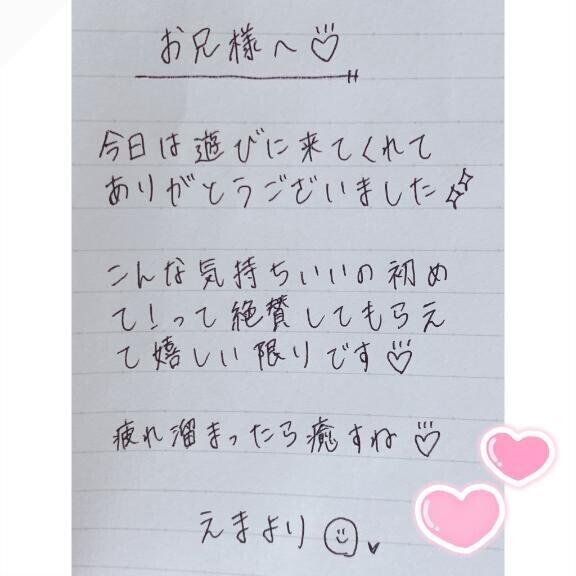 お兄様へ♡
今日は遊びに来てくれて
ありがとうございました
こんな気持ちいいの初め
て!って絶賛してもらえ
て嬉しい限りです♡
疲れ溜まったら癒すね♡
えまより